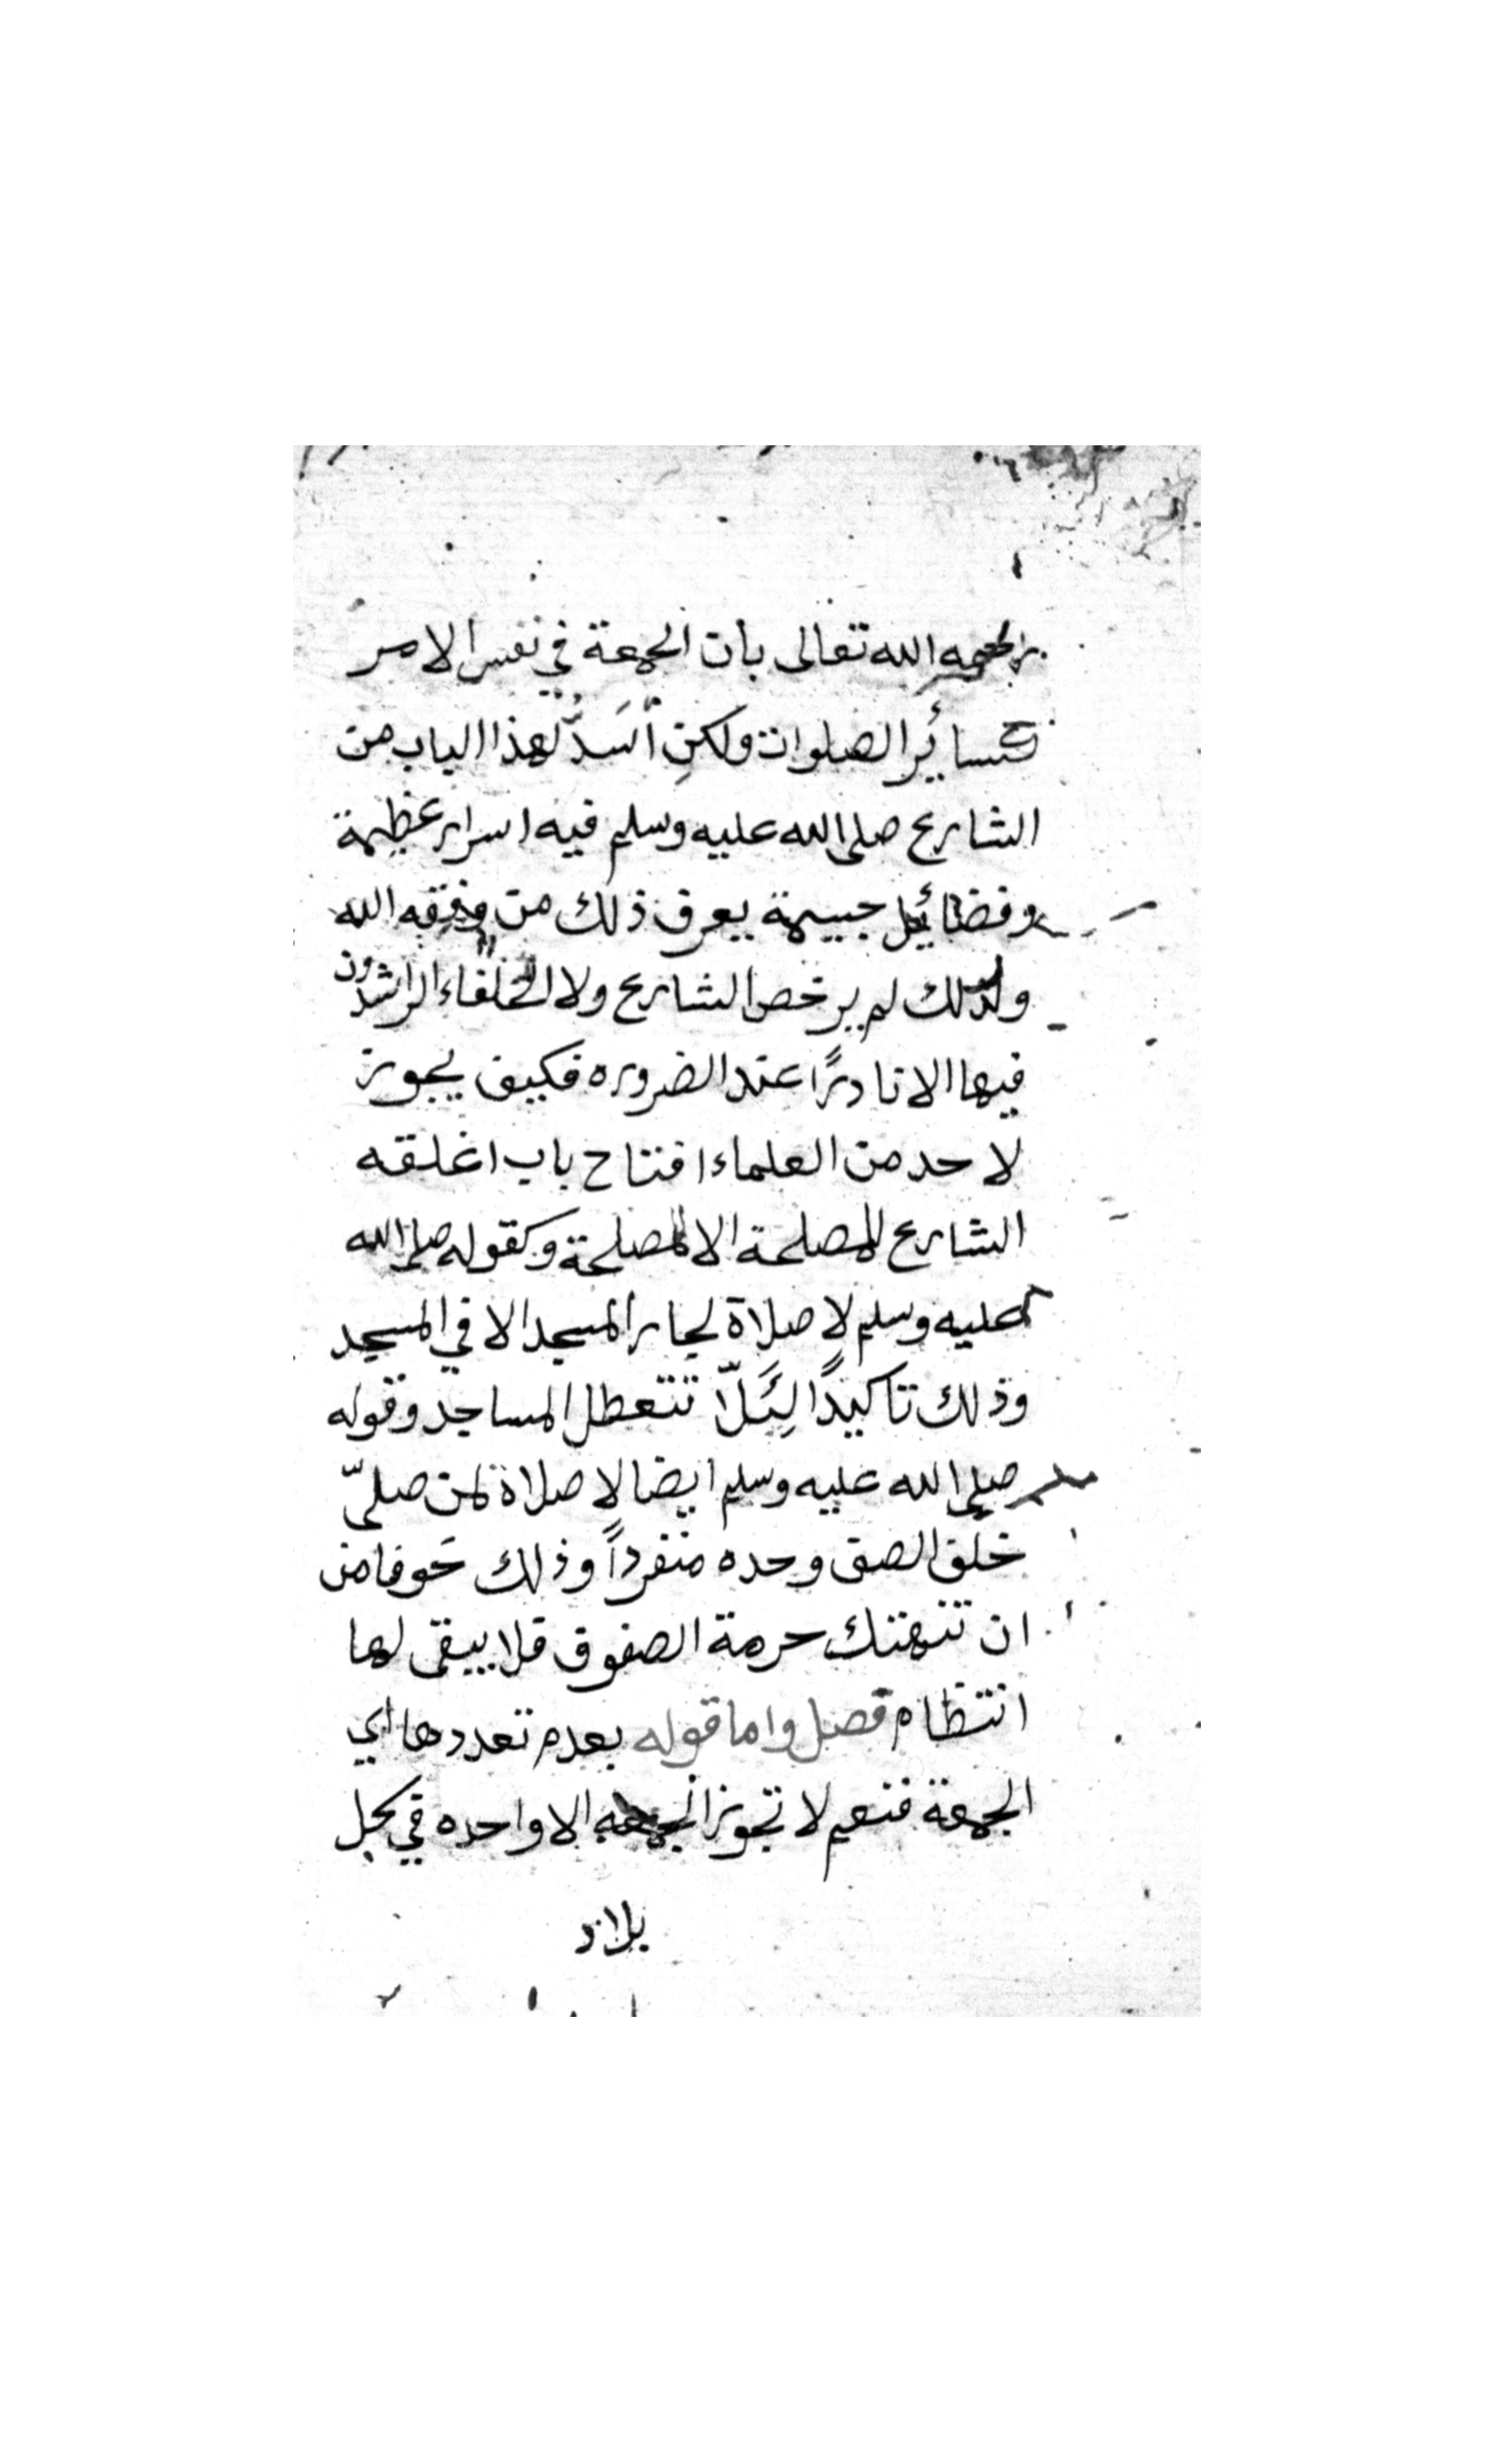 رحمه الله تعالى بان الجمعة في نفس الامر
كسائر الصلوات ولكن اسَدُّ لهذا الباب من
الشارع صلى الله عليه وسلم فيه اسرار عظيمة
وفضائل جسيمة يعرف ذلك من وفقه الله
ولذلك لم يرخص الشارع ولا الخلفاء الراشدون
فيها الا نادرًا عند الضروره فكيف يجوز
لاحد من العلماء افتتاح باب اغلقه
الشارع للمصلحة الا لمصلحة وكقوله صلى الله
عليه وسلم لا صلاة لجار المسجد الا في المسجد
وذلك تاكيدًا لِئَلّا تتعطل المساجد وقوله
صلى الله عليه وسلم ايضا لا صلاة لمن صلىّ
خلف الصف وحده منفرداً وذلك خوفا من
ان تنهتك حرمة الصفوف فلا يبقى لها
انتظام فصل واما قوله بعدم تعددها اي
الجمعة فنعم لا تجوز الجمعه الا واحده في كل
بلاد